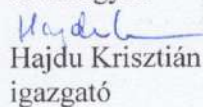 Hajdu
Hajdu Krisztián
igazgató